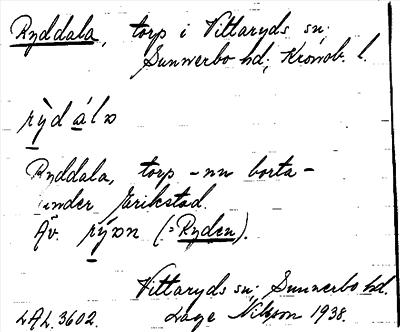 Ryddala, torp i Vittaryds sn;
Sunnerbo hd; Kronob. l.
rỳdálɷ
Ryddala, torp – nu borta –
under Erikstad.
Äv. rýɷn (= Ryden).
Vittaryds sn; Sunnerbo hd.
LAL. 3602. Lage Nilsson 1938.